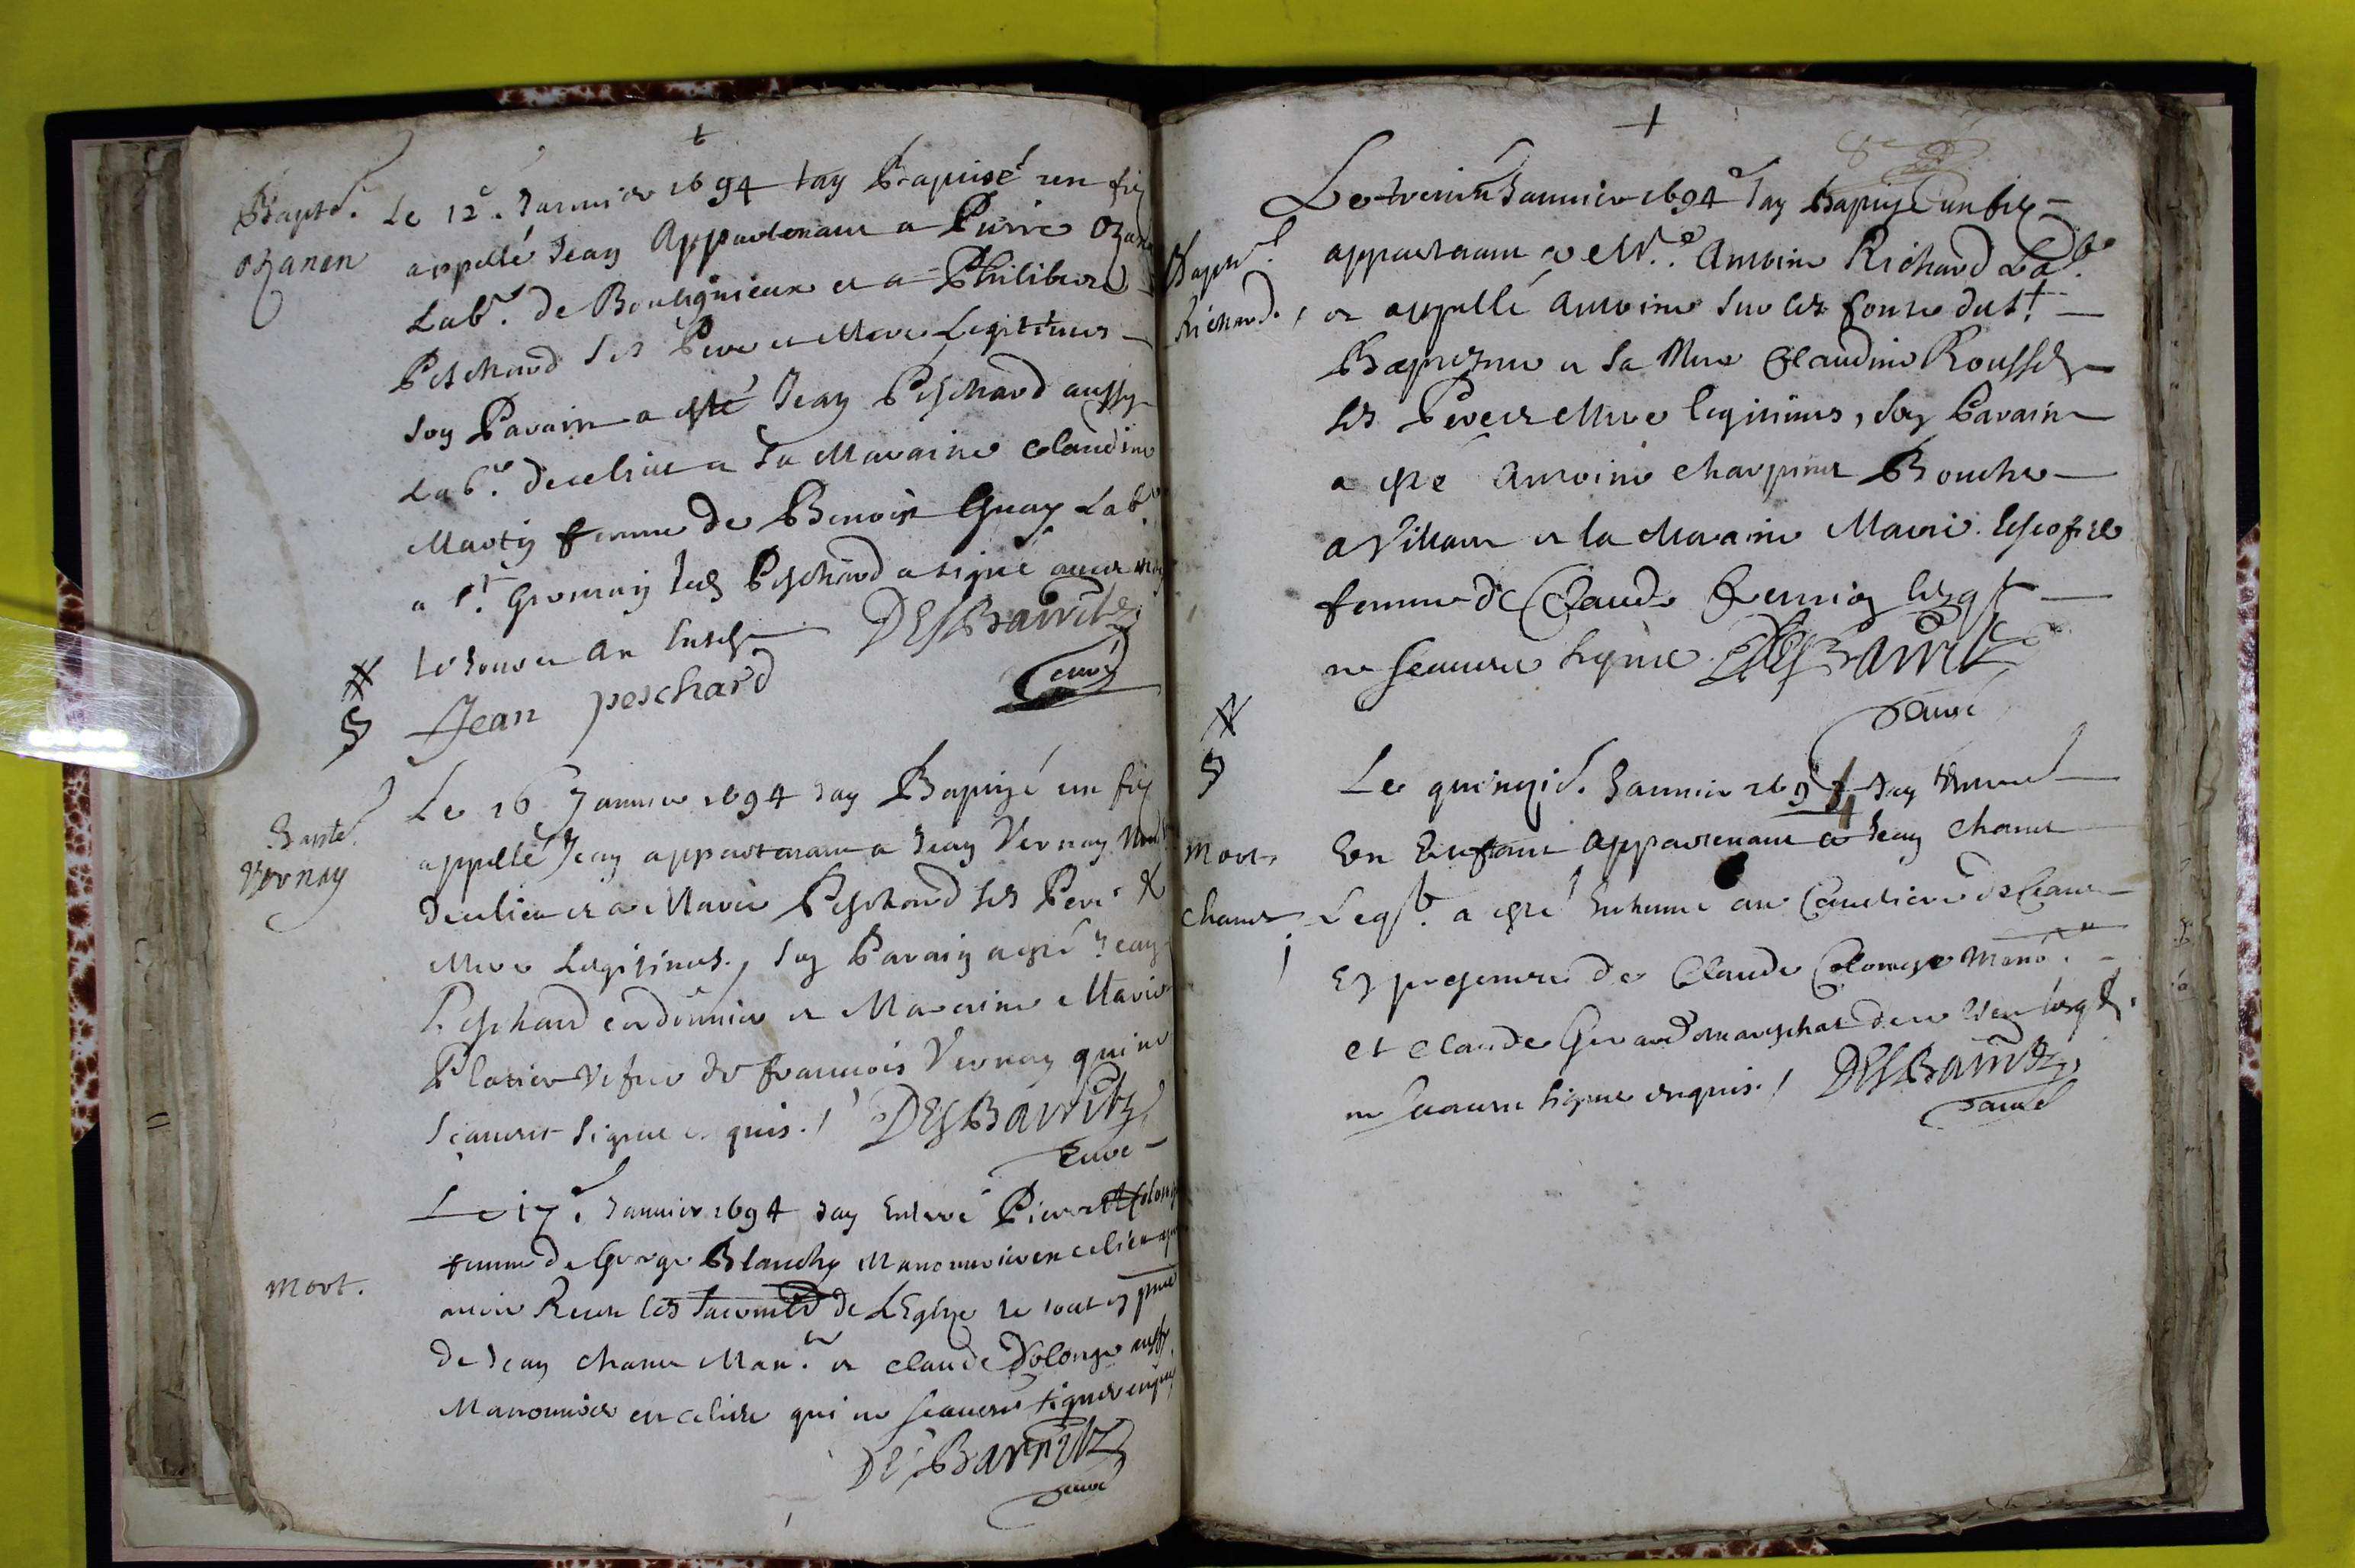 Bapté.
Ozanon
Le 12e. Janvier 1694 Jay Baptisé un fils
appellé Jean Appartenant a Pierre Ozanon
Labr. de Boulignieux et a Philiberte
Peschard ses Pere et Mere Legitimes
son Parain a esté Jean Peschard aussy
Labr. de ce lieu et sa Maraine Claudine
Martin femme de Benoist Guay Labr.
a St. Germain led Peschard a signé avec moy
le jour et an susd
DESBarritz
Jean peschard
Curé
Bapté.
Vernay
Le 16 Janvier 1694 Jay Baptizé un fils
appellé Jean appartenant a Jean Vernay
de ce lieu et a Marie Peschard ses Pere &
Mere Legitimes, son Parain a esté Jean
Peschard cordonnier et Maraine Marie
Plasier vefve de francois Vernay qui ne
scauent signer enquis.
DESBarritz
Curé
Mort.
Le 17e. Janvier 1694 Jay Enterré Pierrette Colonge
femme de George Blanchy Manouvrier en ce lieu apres
avoir Receu les sacrements de LEglize le tout en pnce
de Jean Chanet Manr. et claude Colonge aussy
Manouvrier en ce lieu qui ne scauent signer enquis
DESBarritz
Curé
Bapté.
Richard.
Le Janvier 1694 Jay Baptizé un fils
appartenant a Mre. Antoine Richard
et appellé Antoine sur les fonts du St.
Baptesme et sa Mere Claudine Roussel
ses Pere et Mere legitimes, son Parain
a esté Antoine Charpinet Boucher
a Villars et la Maraine Marie
femme de Claude lesqls
ne scauent signer
DESBarritz
Curé
Mort,
Chanet
Le quinzie. Janvier 1694 Jay Enterré
un Enfant Appartenant a Jean Chanet
Leql. a esté Inhumé au Cimetiere de Ceans
En presence de Claude Colonge Mano.
et Claude Girard mareschal de ce lieu lesqls.
ne scauent signer enquis.
DESBarritz
Curé